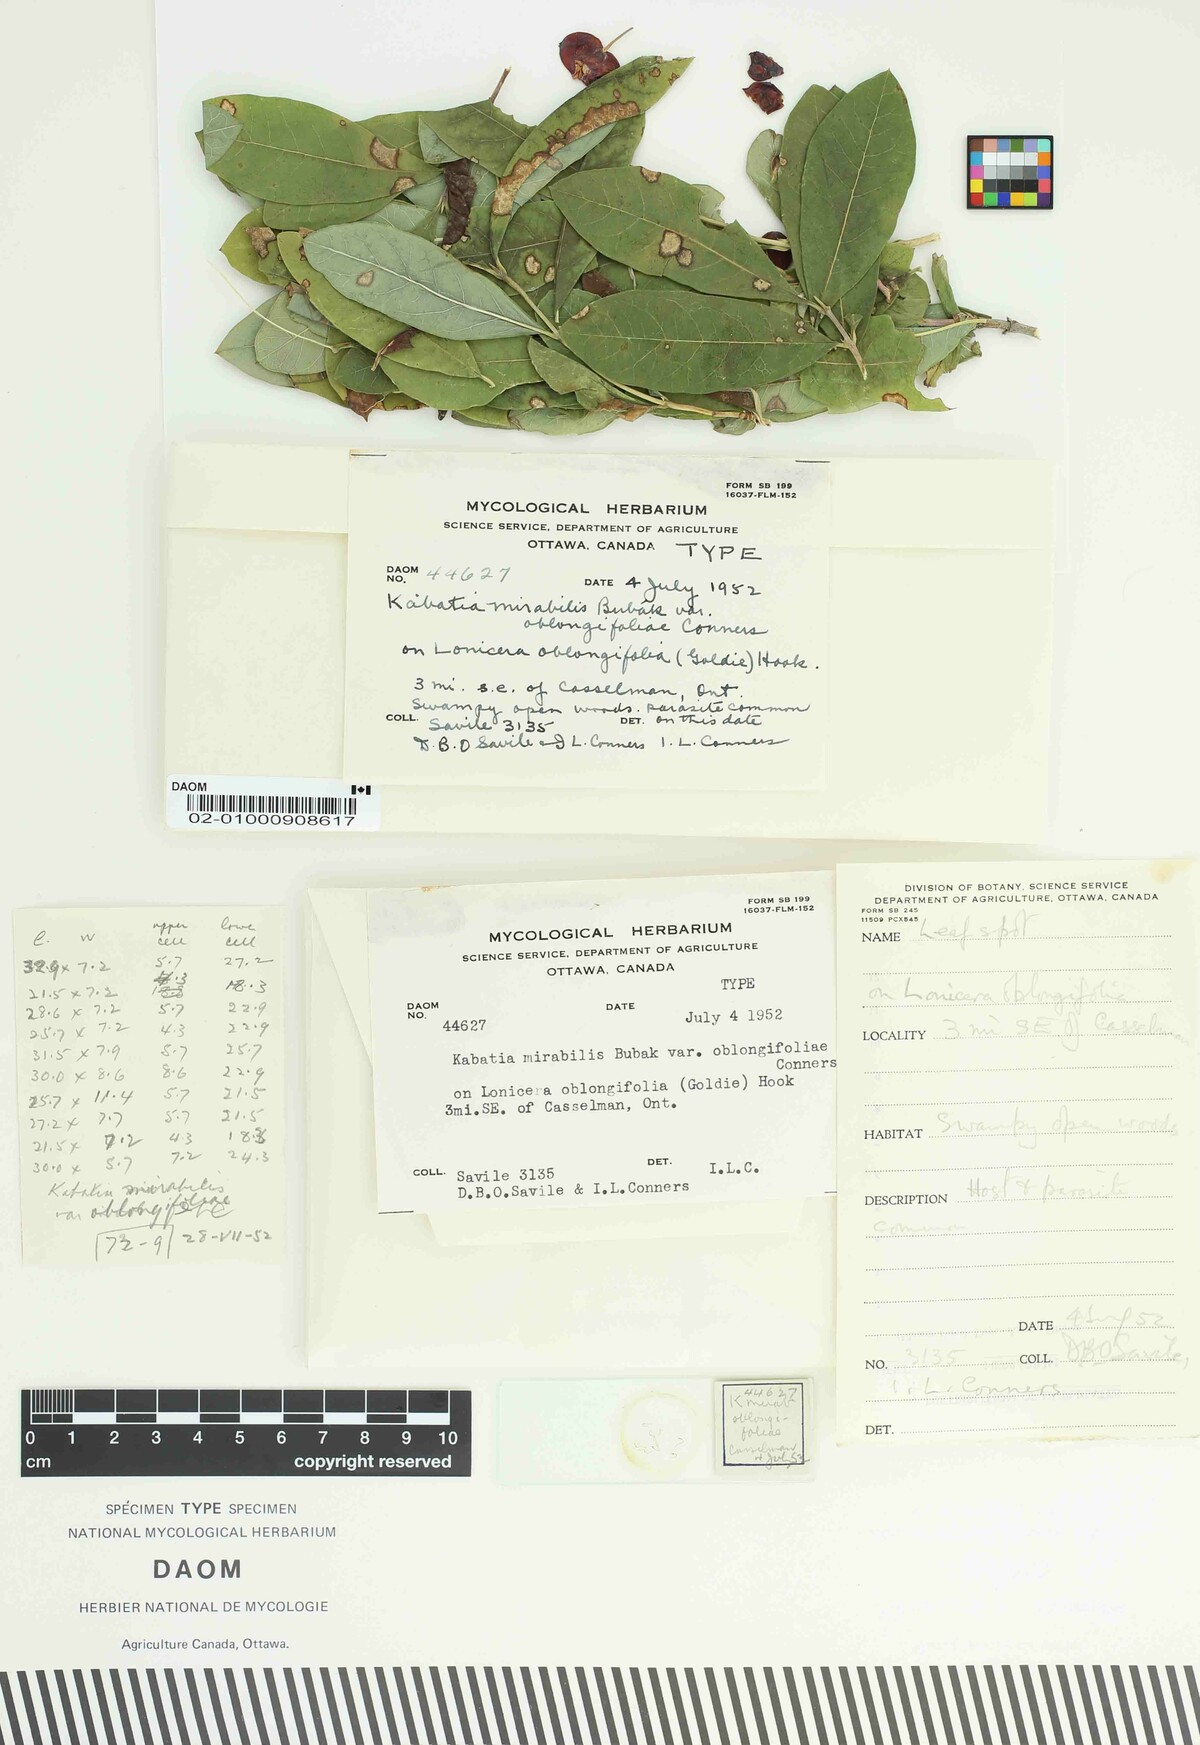 FORM SB 199
16037-FLM-152
MYCOLOGICAL HERBARIUM
SCIENCE SERVICE, DEPARTMENT OF AGRICULTURE
OTTAWA, CANADA TYPE
DAOM NO. 44627 DATE 4 July 1952
Kabatia mirabilis Bubák var.
oblongifoliae Conners
on Lonicera oblongifolia (Goldie) Hook.
3 mi. s.e. of Casselman, Ont.
Swampy open woods. parasite common
COLL. Savile 3135 DET. on this date
D.B.O Savile & I L. Conners I. L. Conners
DAOM
02-01000908617
l. w upper cell lower cell
32.9 x 7.2 5.7 27.2
21.5 x 7.2 4.3 18.3
28.6 x 7.2 5.7 22.9
25.7 x 7.2 4.3 22.9
31.5 x 7.9 5.7 25.7
30.0 x 8.6 8.6 22.9
25.7 x 11.4 5.7 21.5
27.2 x 7.7 5.7 21.5
21.5 x 7.2 4.3 18.3
30.0 x 5.7 7.2 24.3
Kabatia mirabilis
var oblongifoliae
72-9 28-VII-52
FORM SB 199
16037-FLM-152
MYCOLOGICAL HERBARIUM
SCIENCE SERVICE, DEPARTMENT OF AGRICULTURE
OTTAWA, CANADA
TYPE
DAOM NO. 44627 DATE July 4 1952
Kabatia mirabilis Bubak var. oblongifoliae
Conners
on Lonicera oblongifolia (Goldie) Hook
3mi.SE. of Casselman, Ont.
COLL. Savile 3135 DET. I.L.C.
D.B.O.Savile & I.L.Conners
DIVISION OF BOTANY, SCIENCE SERVICE
DEPARTMENT OF AGRICULTURE, OTTAWA, CANADA
FORM SB 245
11509 PCX845
NAME Leaf spot
on Lonicera oblongifolia
LOCALITY 3 mi SE of Casselman
HABITAT Swampy open woods
DESCRIPTION Host & parasite
common
DATE 4 July 52
NO. 3135 COLL. DBO Savile,
I. L. Conners
DET.
44627
K mirab
oblongi-
foliae
Casselman
4 Jul 52
0 1 2 3 4 5 6 7 8 9 10
cm copyright reserved
SPÉCIMEN TYPE SPECIMEN
NATIONAL MYCOLOGICAL HERBARIUM
DAOM
HERBIER NATIONAL DE MYCOLOGIE
Agriculture Canada, Ottawa.